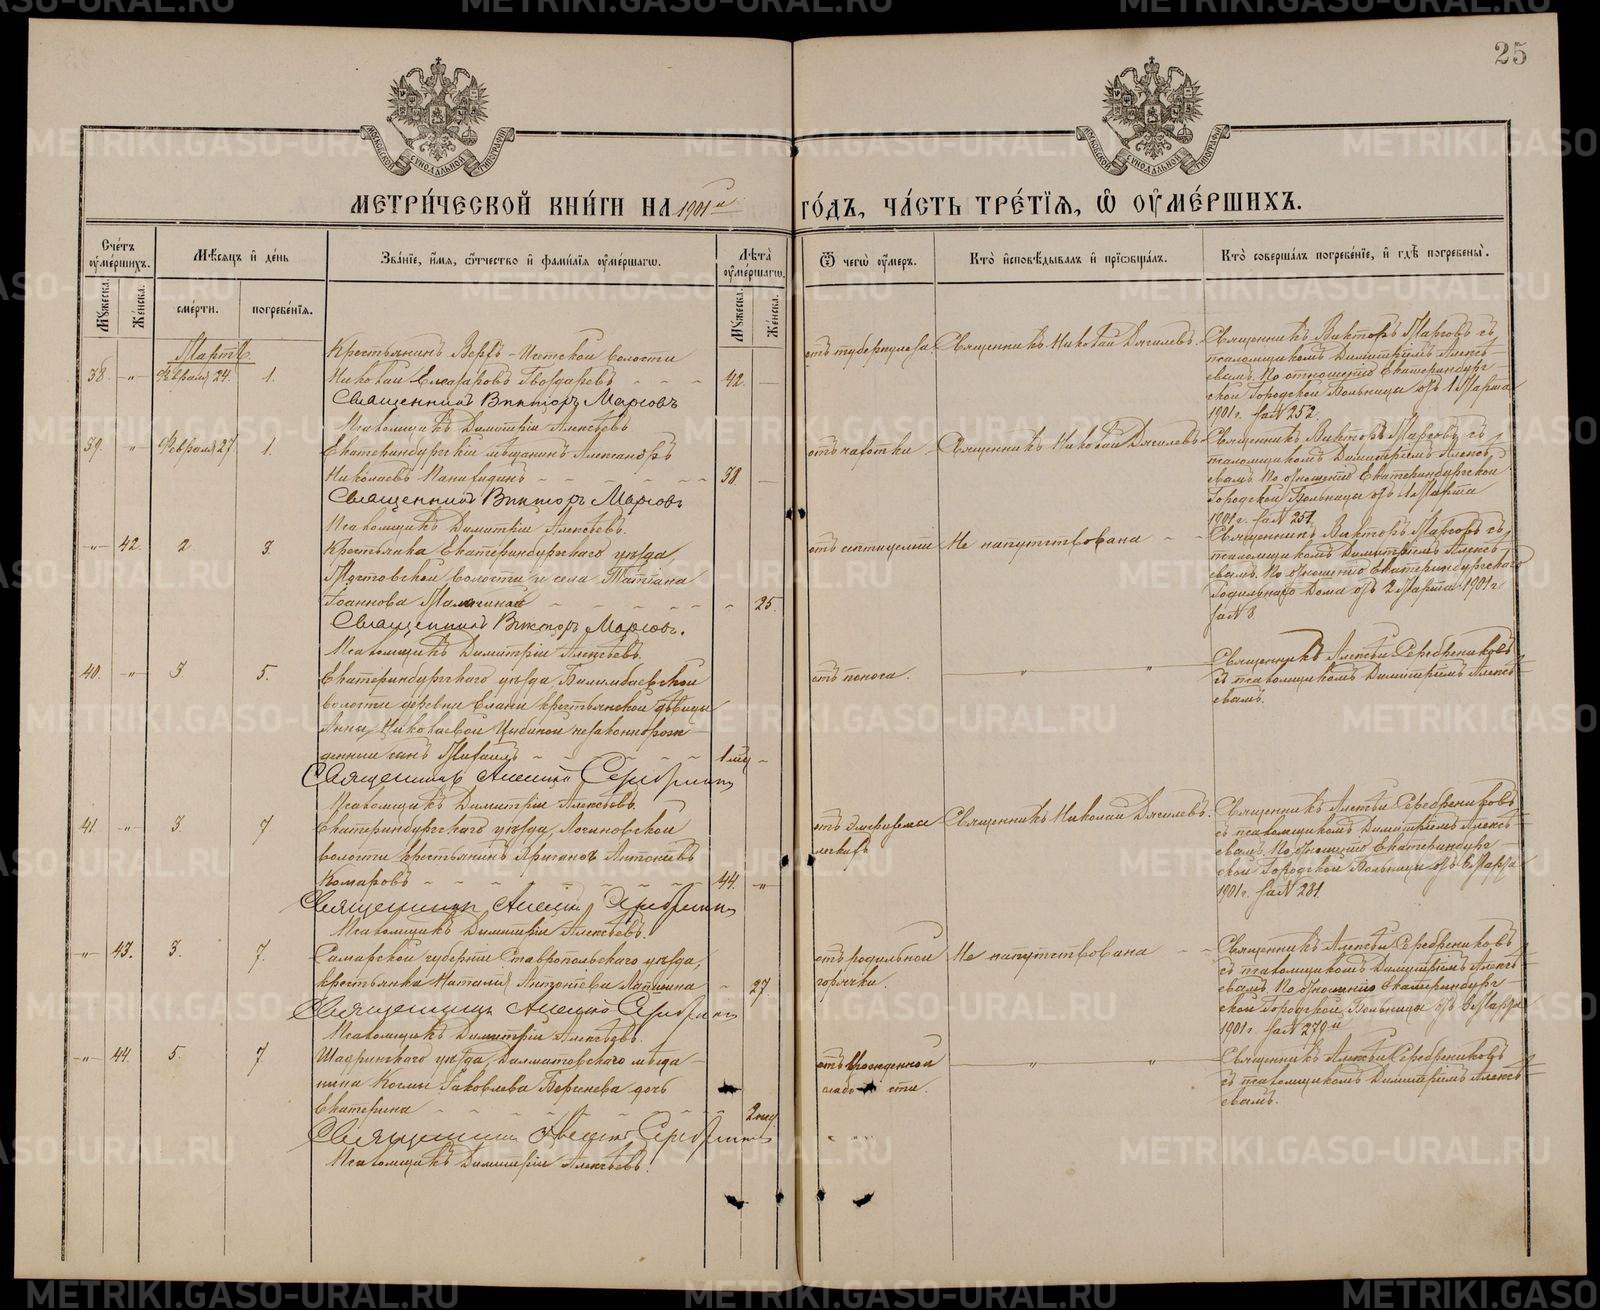 25
МОСКОВСКОЙ СУНОДАЛЬНОЙ ТИПОГРАФІИ
МОСКОВСКОЙ СУНОДАЛЬНОЙ ТИПОГРАФІИ
МЕТРИ́ЧЕСКОЙ КНИ́ГИ НА 1901й ГО́ДЪ, ЧА́СТЬ ТРЕ́ТІЯ, Ѽ ОУ҆МЕ́РШИХЪ.
Сче́тъ оу҆ме́ршихъ.
Мѣ́сяцъ и҆ де́нь
Зва́ніе, и҆́мя, ѻ҆́тчество и҆ фами́лія оу҆ме́ршагѡ.
Лѣ́та оу҆ме́ршагѡ.
Ѿ чегѡ̀ оу҆́меръ.
Кто̀ и҆сповѣ́дывалъ и҆ прїѡбща́лъ.
Кто̀ соверша́лъ погребе́ніе, и҆ гдѣ̀ погребены̀.
Мꙋ́жеска.
Же́нска.
сме́рти.
погребе́нія.
Мꙋ́жеска.
Же́нска.
Мартъ
38. -"- Февраля 24. 1.
Крестьянинъ Верхъ-Исетской волости
Николай Елеазаровъ - - - 42. -
Священникъ Викторъ Марковъ
Псаломщикъ Димитрій Алексѣевъ.
отъ туберкулеза
Священникъ Николай Дягилевъ.
Священникъ Викторъ Марковъ съ
псаломщикомъ Димитріемъ Алексѣ-
евымъ. По отношенію Екатеринбург-
ской Городской Больницы отъ 1 Марта
1901 г. за N 252.
39. " Февраля 27 1.
Екатеринбургскій мѣщанинъ Александръ
Николаевъ - - - 38. -
Священникъ Викторъ Марковъ
Псаломщикъ Димитрій Алексѣевъ.
отъ чахотки
Священникъ Николай Дягилевъ
Священникъ Викторъ Марковъ съ
псаломщикомъ Димитріемъ Алексѣ-
евымъ. По отношенію Екатеринбургской
Городской Больницы отъ 1 Марта
1901 г. за N 251.
-"- 42. 2 3.
Крестьянка Екатеринбургскаго уѣзда
волости и села Татіана
Іоаннова - - - 25.
Священникъ Викторъ Марковъ.
Псаломщикъ Димитрій Алексѣевъ.
отъ септицеміи
Не напутствована - -
Священникъ Викторъ Марковъ съ
псаломщикомъ Димитріемъ Алексѣ-
евымъ. По отношенію Екатеринбургскаго
Родильнаго Дома отъ 2 Марта 1901 г.
за N 8
40. -"- 3. 5.
Екатеринбургскаго уѣзда, Билимбаевской
волости деревни Елани крестьянской дѣвицы
Анны Николаевой незаконнорож-
денный сынъ Михаилъ - - - 1 мѣс. -
Священникъ Алексій Серебрениковъ
Псаломщикъ Димитрій Алексѣевъ.
отъ поноса.
" "
Священникъ Алексѣй Серебрениковъ
съ псаломщикомъ Димитріемъ Алексѣ-
евымъ.
41. -"- 3. 7
Екатеринбургскаго уѣзда, Логиновской
волости крестьянинъ Антоніевъ
Комаровъ - - - 44. -"-
Священникъ Алексій Серебрениковъ
Псаломщикъ Димитрій Алексѣевъ.
отъ эмфиземы
легкихъ
Священникъ Николай Дягилевъ.
Священникъ Алексѣй Серебрениковъ
съ псаломщикомъ Димитріемъ Алексѣ-
евымъ. По отношенію Екатеринбург-
ской Городской Больницы отъ 6 Марта
1901 г. за N 281.
-"- 43. 3. 7.
Самарской губерніи Ставропольскаго уѣзда,
крестьянка Наталія Антоніева Лапшина - 27.
Священникъ Алексій Серебрениковъ
Псаломщикъ Димитрій Алексѣевъ.
отъ родильной
горячки.
Не напутствована - -
Священникъ Алексѣй Серебрениковъ
съ псаломщикомъ Димитріемъ Алексѣ-
евымъ. По отношенію Екатеринбург-
ской Городской Больницы отъ 6 Марта
1901 г. за N 279й
-"- 44. 5. 7
Шадринскаго уѣзда, Далматовскаго мѣща-
нина Космы Іаковлева дочь
Екатерина - - - 2 мѣс.
Священникъ Алексій Серебрениковъ
Псаломщикъ Димитрій Алексѣевъ.
отъ врожденной
слабости.
" "
Священникъ Алексѣй Серебрениковъ
съ псаломщикомъ Димитріемъ Алексѣ-
евымъ.
METRIKI.GASO-URAL.RU